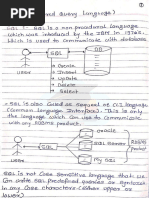 ①
SQL (Structured Query Language)
SQL : - SQL is a non procedural language
which was introduced by the IBM in 1970s.
which is used to communicate with database
user
SQL
DB
→ Create
→ Insert
→ Update
→ Delete
→ Select
- SQL is also called as
(Common Language Interface). This is only
the language which can use to communicate
with any RDBMS product.
user
SQL
oracle
SQL
My SQL
RDBMS
product
- SQL is not case sensitive language that we
can write SQL predefined queries or syntax
in any case characters (either upper or
lower)